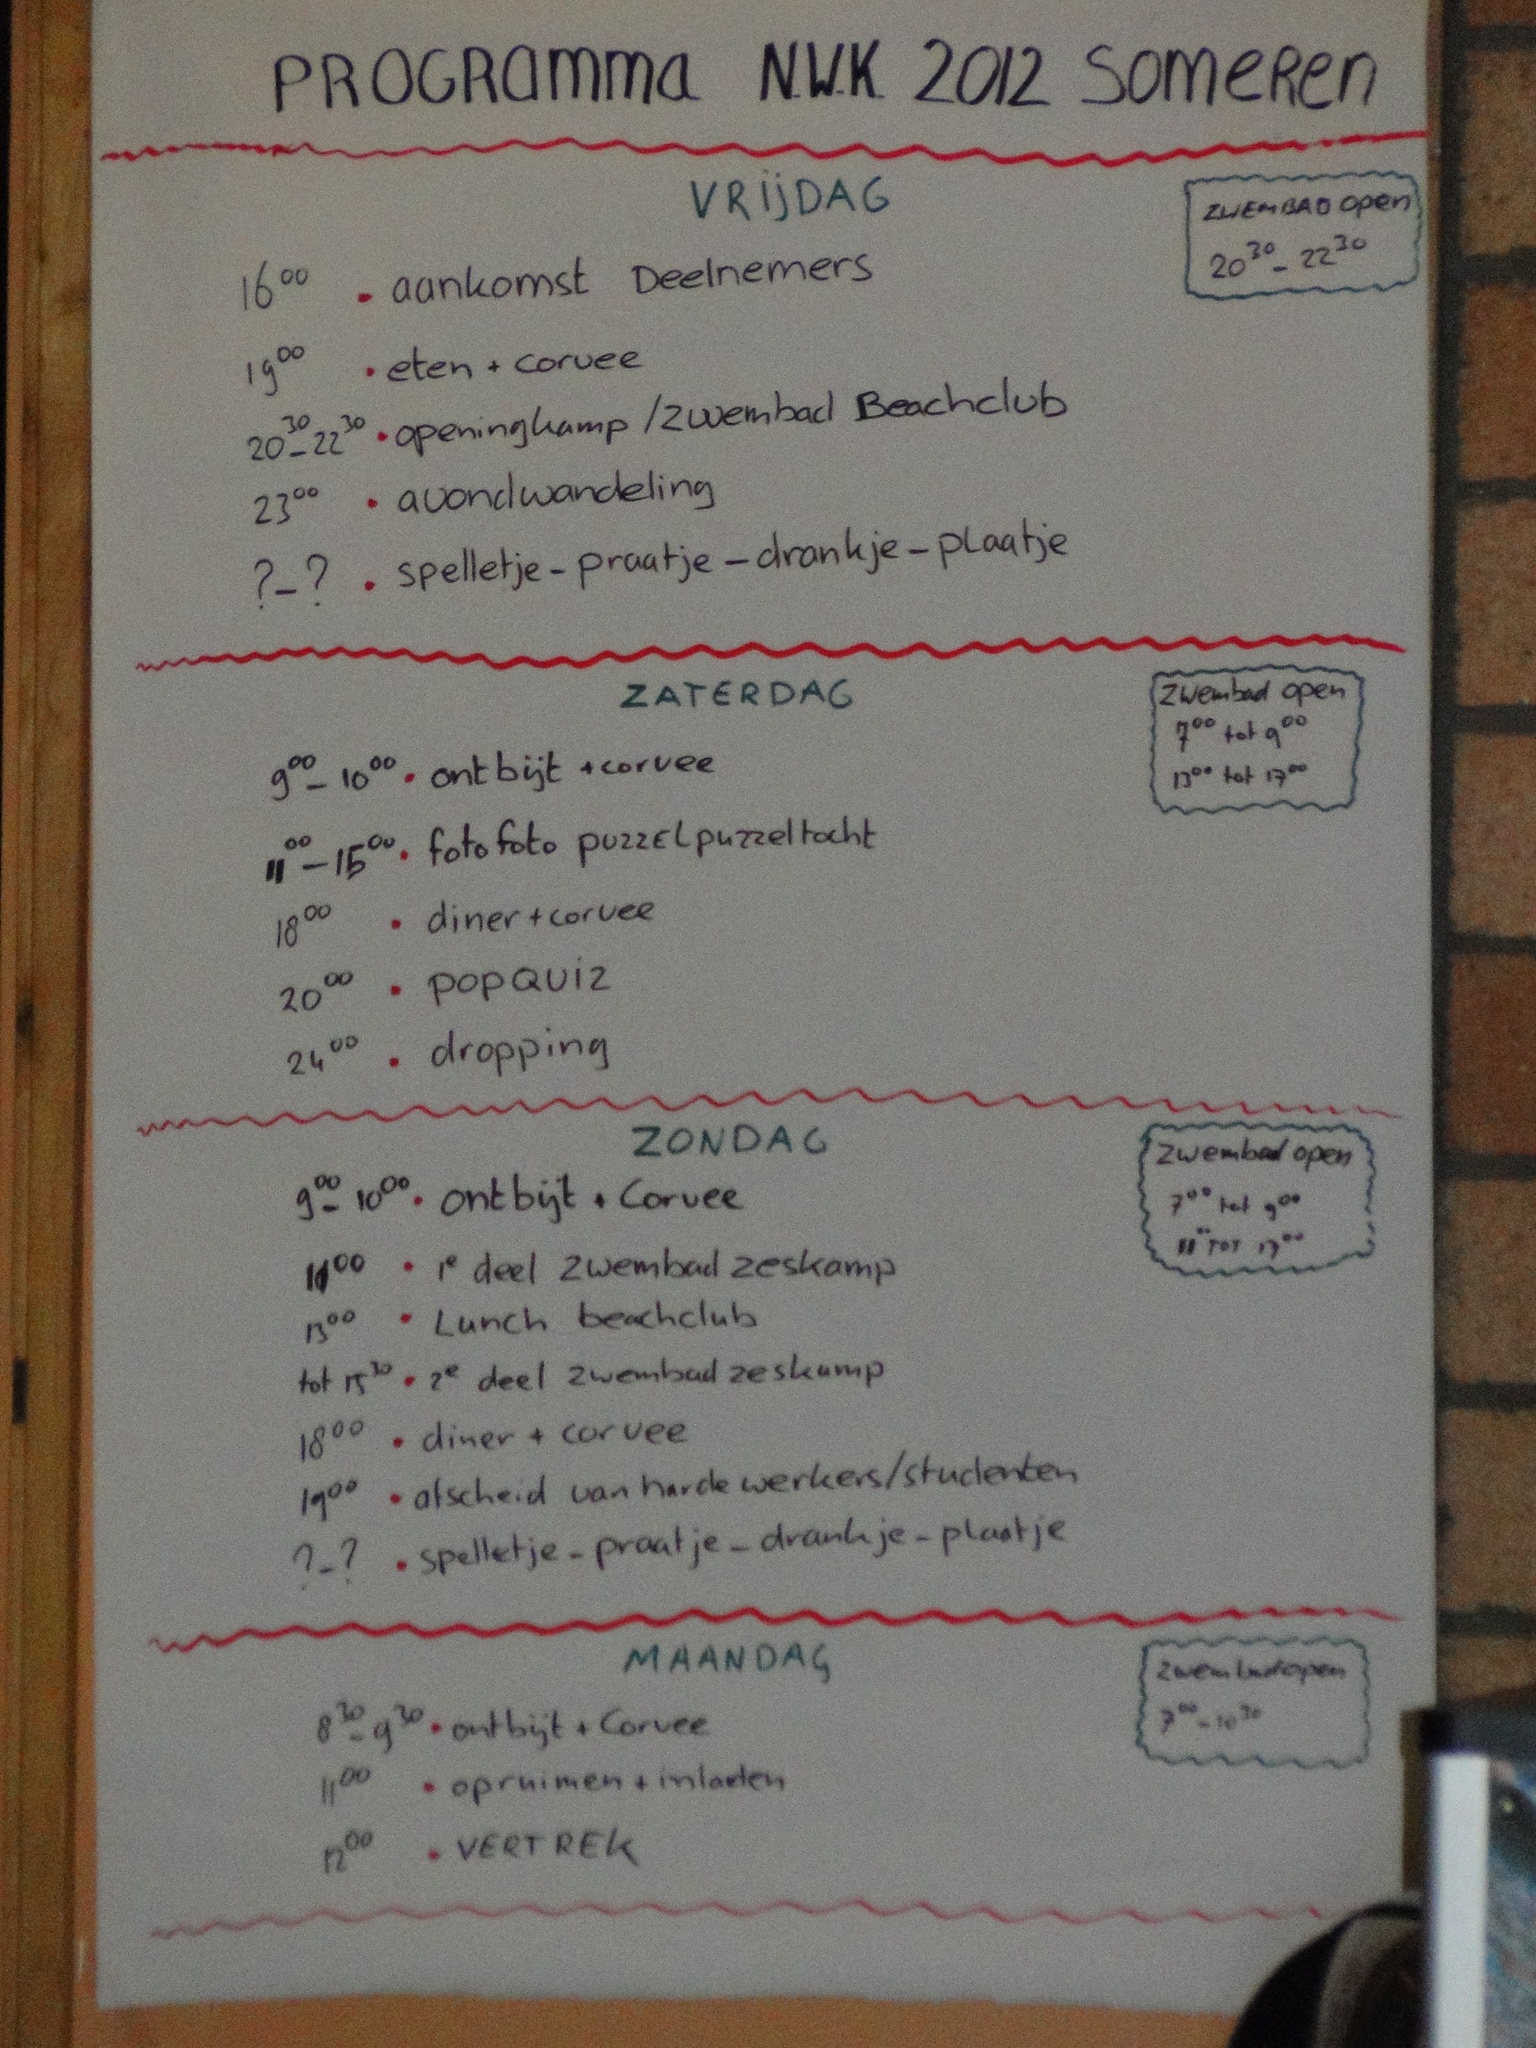 PROGRAMMA N.W.K. 2012 SOMEREN
VRIJDAG
ZWEMBAD open
20 30 - 22 30
16 00 • aankomst Deelnemers
19 00 • eten + corvee
20 30 - 22 30 • openingkamp / zwembad Beachclub
23 00 • avondwandeling
? - ? • spelletje - praatje - drankje - plaatje
ZATERDAG
Zwembad open
7 00 tot 9 00
13 00 tot 17 00
9 00 - 10 00 • ontbijt + corvee
11 00 - 15 00 • fotofoto puzzelpuzzeltocht
18 00 • diner + corvee
20 00 • POPQUIZ
24 00 • dropping
ZONDAG
Zwembad open
7 00 tot 9 00
11 00 TOT 17 00
9 00 - 10 00 • ontbijt + Corvee
11 00 • 1e deel zwembad zeskamp
13 00 • Lunch beachclub
tot 15 30 • 2e deel zwembad zeskamp
18 00 • diner + corvee
19 00 • afscheid van harde werkers/studenten
? - ? • spelletje - praatje - drankje - plaatje
MAANDAG
Zwembad open
7 00 - 10 30
8 30 - 9 30 • ontbijt + Corvee
11 00 • opruimen + inladen
12 00 • VERTREK